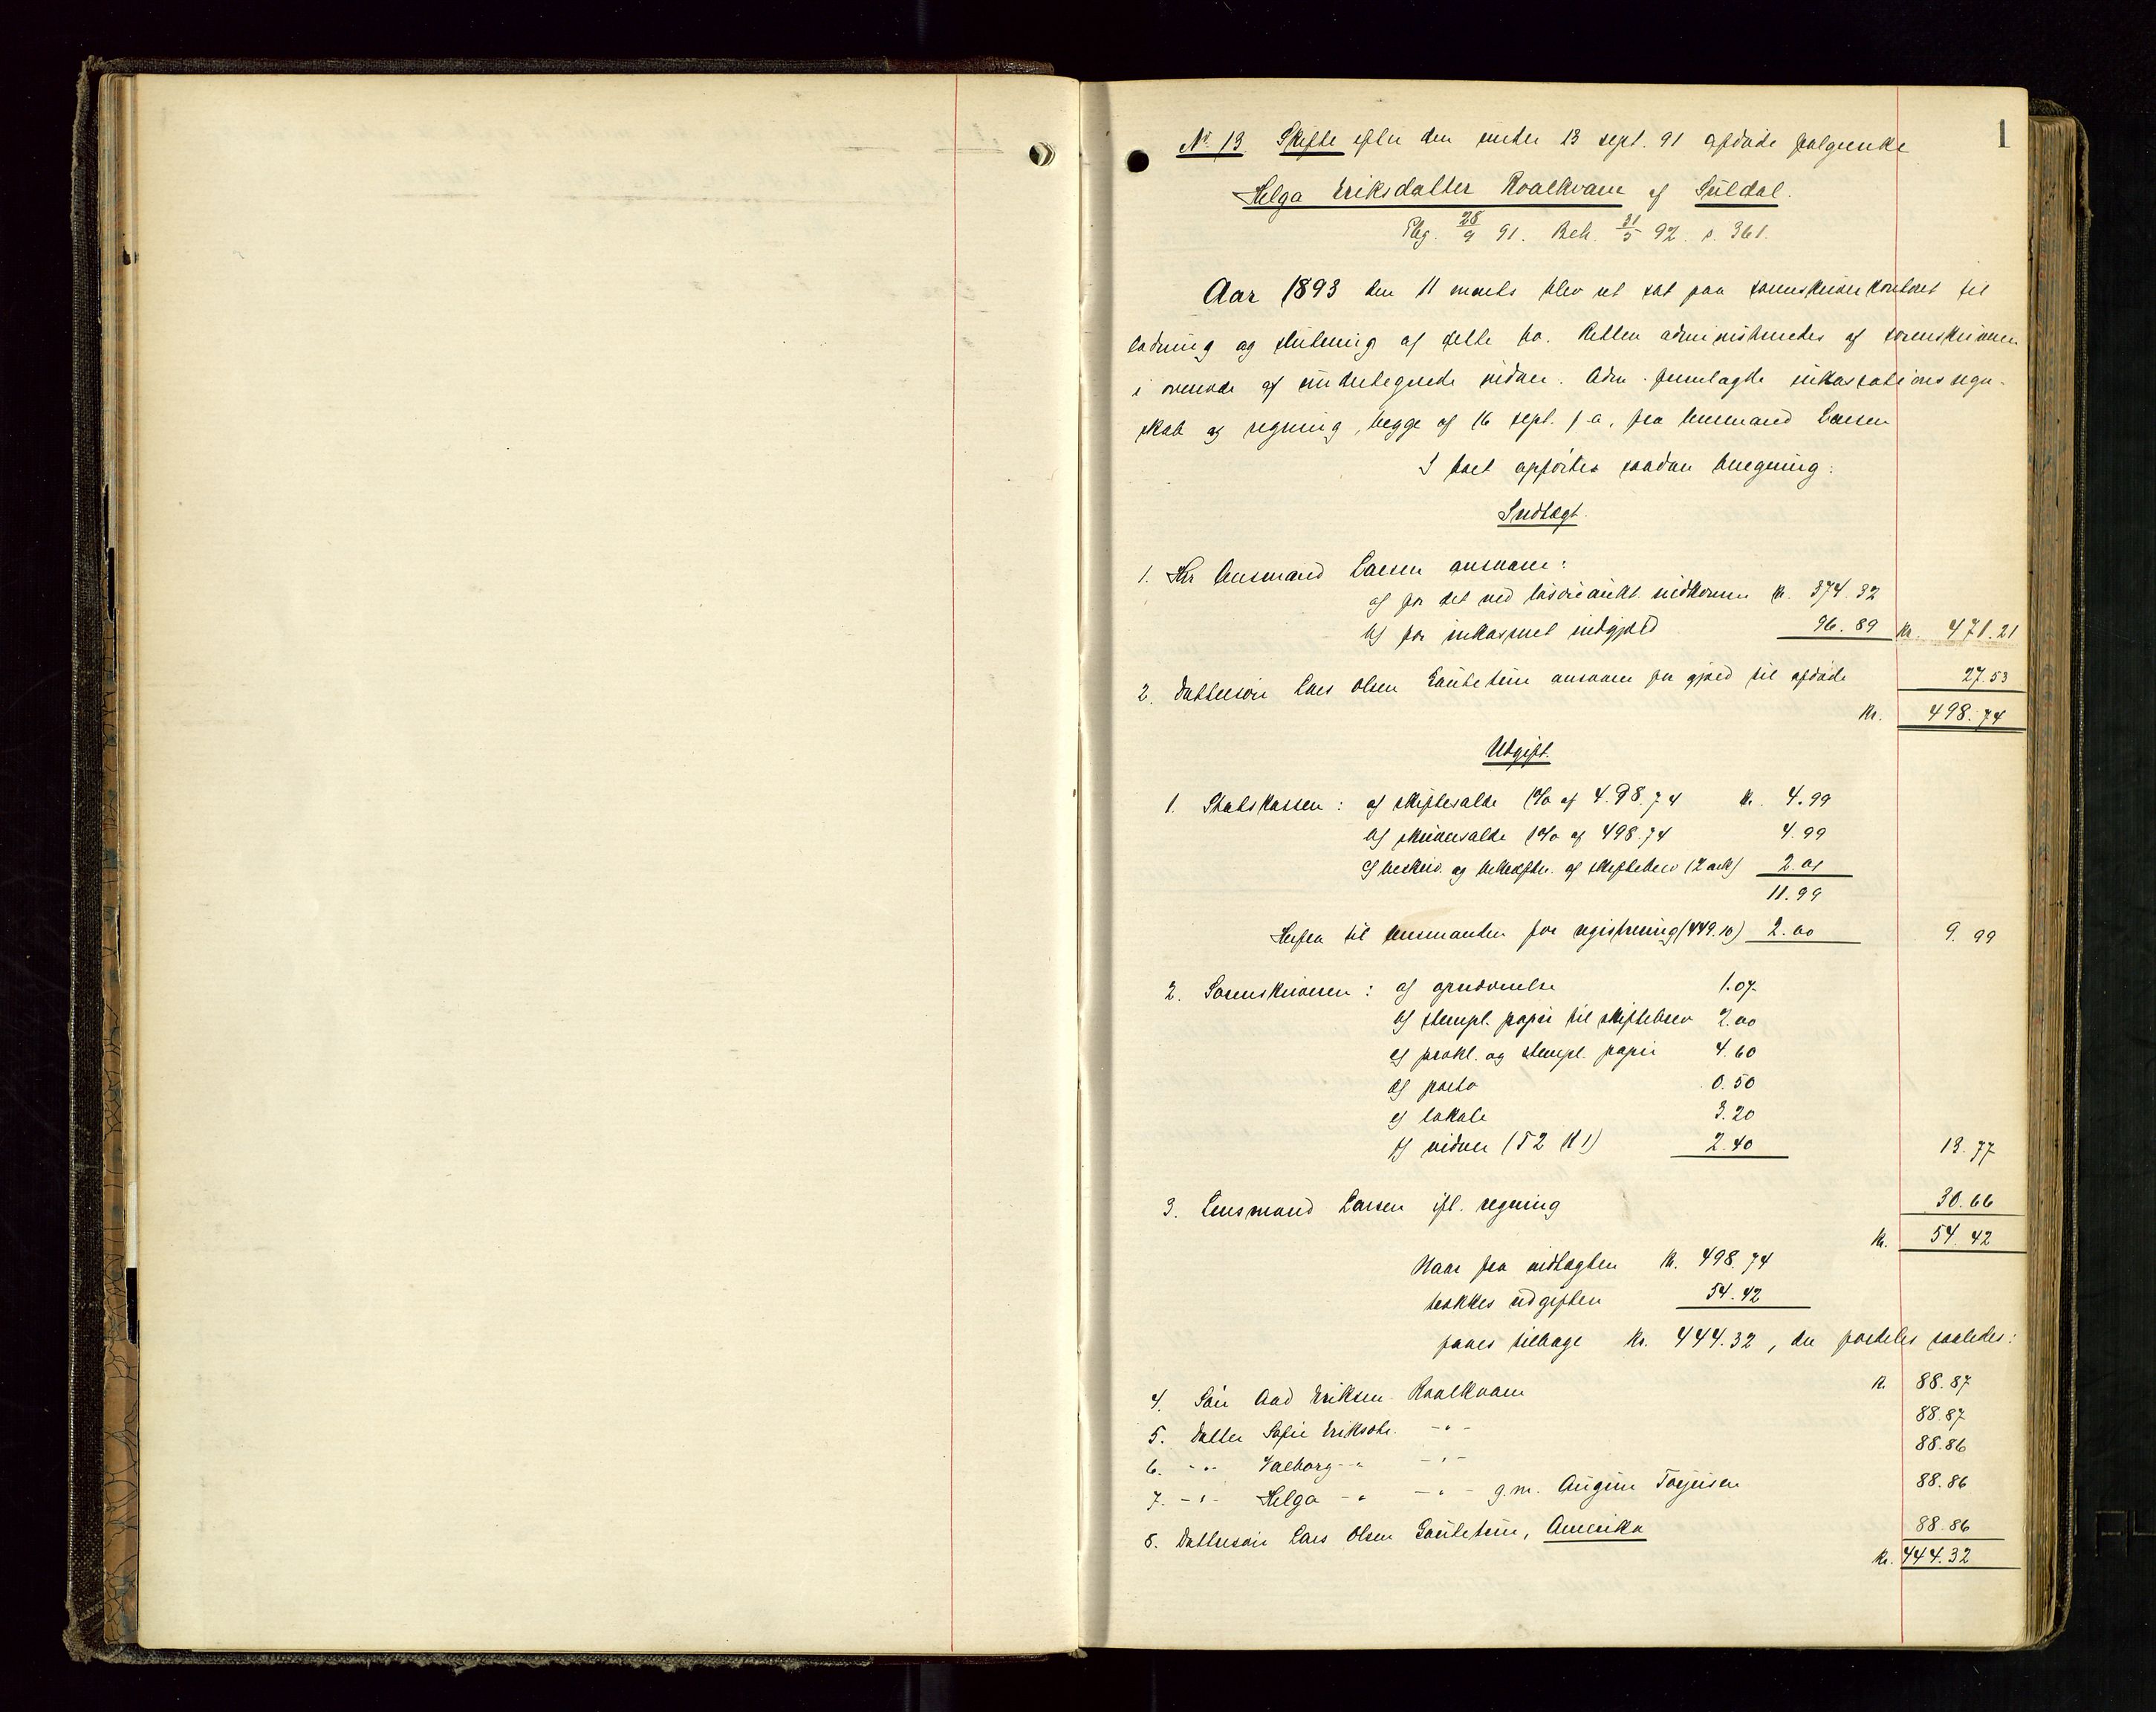 1
No. 13. Skifte efter den under 13 sept. 91 afdøde folgeenke
Helga Eriksdatter Roalkvam af Suldal.
Reg. 28/9 91. Beh. 31/5 92. p. 361.
Aar 1893 den 11 marts blev ret sat paa sorenskriverkontoret til
lodning og slutning af dette bo. Retten administreredes af sorenskriveren
i overvær af undertegnede vidner. Adm. fremlagde inkassationsregn-
skab og regning, begge af 16 sept. f.a., fra lensmand Larsen
I boet opførtes saadan beregning:
Indtægt.
1. Hr lensmand Larsen ansvarer:
a) for det ved løsøreaukt. indkomne kr. 374.32
b) for inkasseret indgjæld 96.89 kr. 471.21
2. Dattersøn Lars Olsen ansvarer for gjæld til afdøde 27.53
Kr. 498.74
Udgift.
1. Statskassen: a) skifteafte 1% af 498.74 kr. 4.99
b) skriversalte 1% af 498.74 4.99
c) beskriv. og bekræftn. af skiftebrev (2 ark) 2.01
11.99
Herfra til lensmanden for registrering (449.10) 2.00 9.99
2. Sorenskriveren: a) 1.07
b) stempl. papir til skiftebrev 2.00
c) prokl. og stempl. papir 4.60
d) porto 0.50
e) lokale 3.20
f) vidner (S2 K1) 2.40 13.77
3. Lensmand Larsen ifl. regning 30.66
Kr. 54.42
Naar fra indtægten kr. 498.74
trækkes udgiften 54.42
faaes tilbage kr. 444.32, der fordeles saaledes:
4. Søn Aad Eriksen Roalkvam kr. 88.87
5. Datter Sofie Eriksdtr. -"- 88.87
6. -"- Valborg -"- -"- 88.86
7. -"- Helga -"- -"- g.m. Augun Torjeisen 88.86
8. Dattersøn Lars Olsen, Amerika 88.86
Kr. 444.32